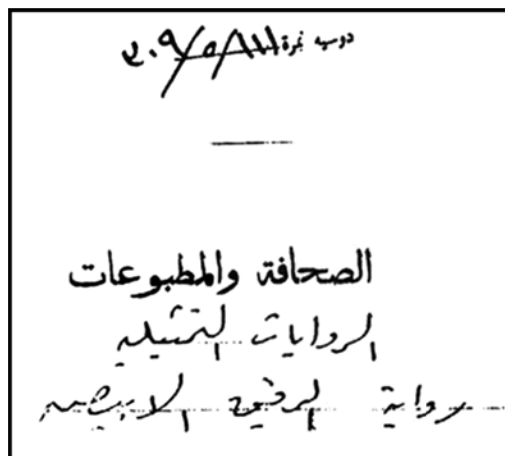 دوسيه نمرة
الصحافة والمطبوعات
الروايات التمثيليه
رواية الرقيق الابيض